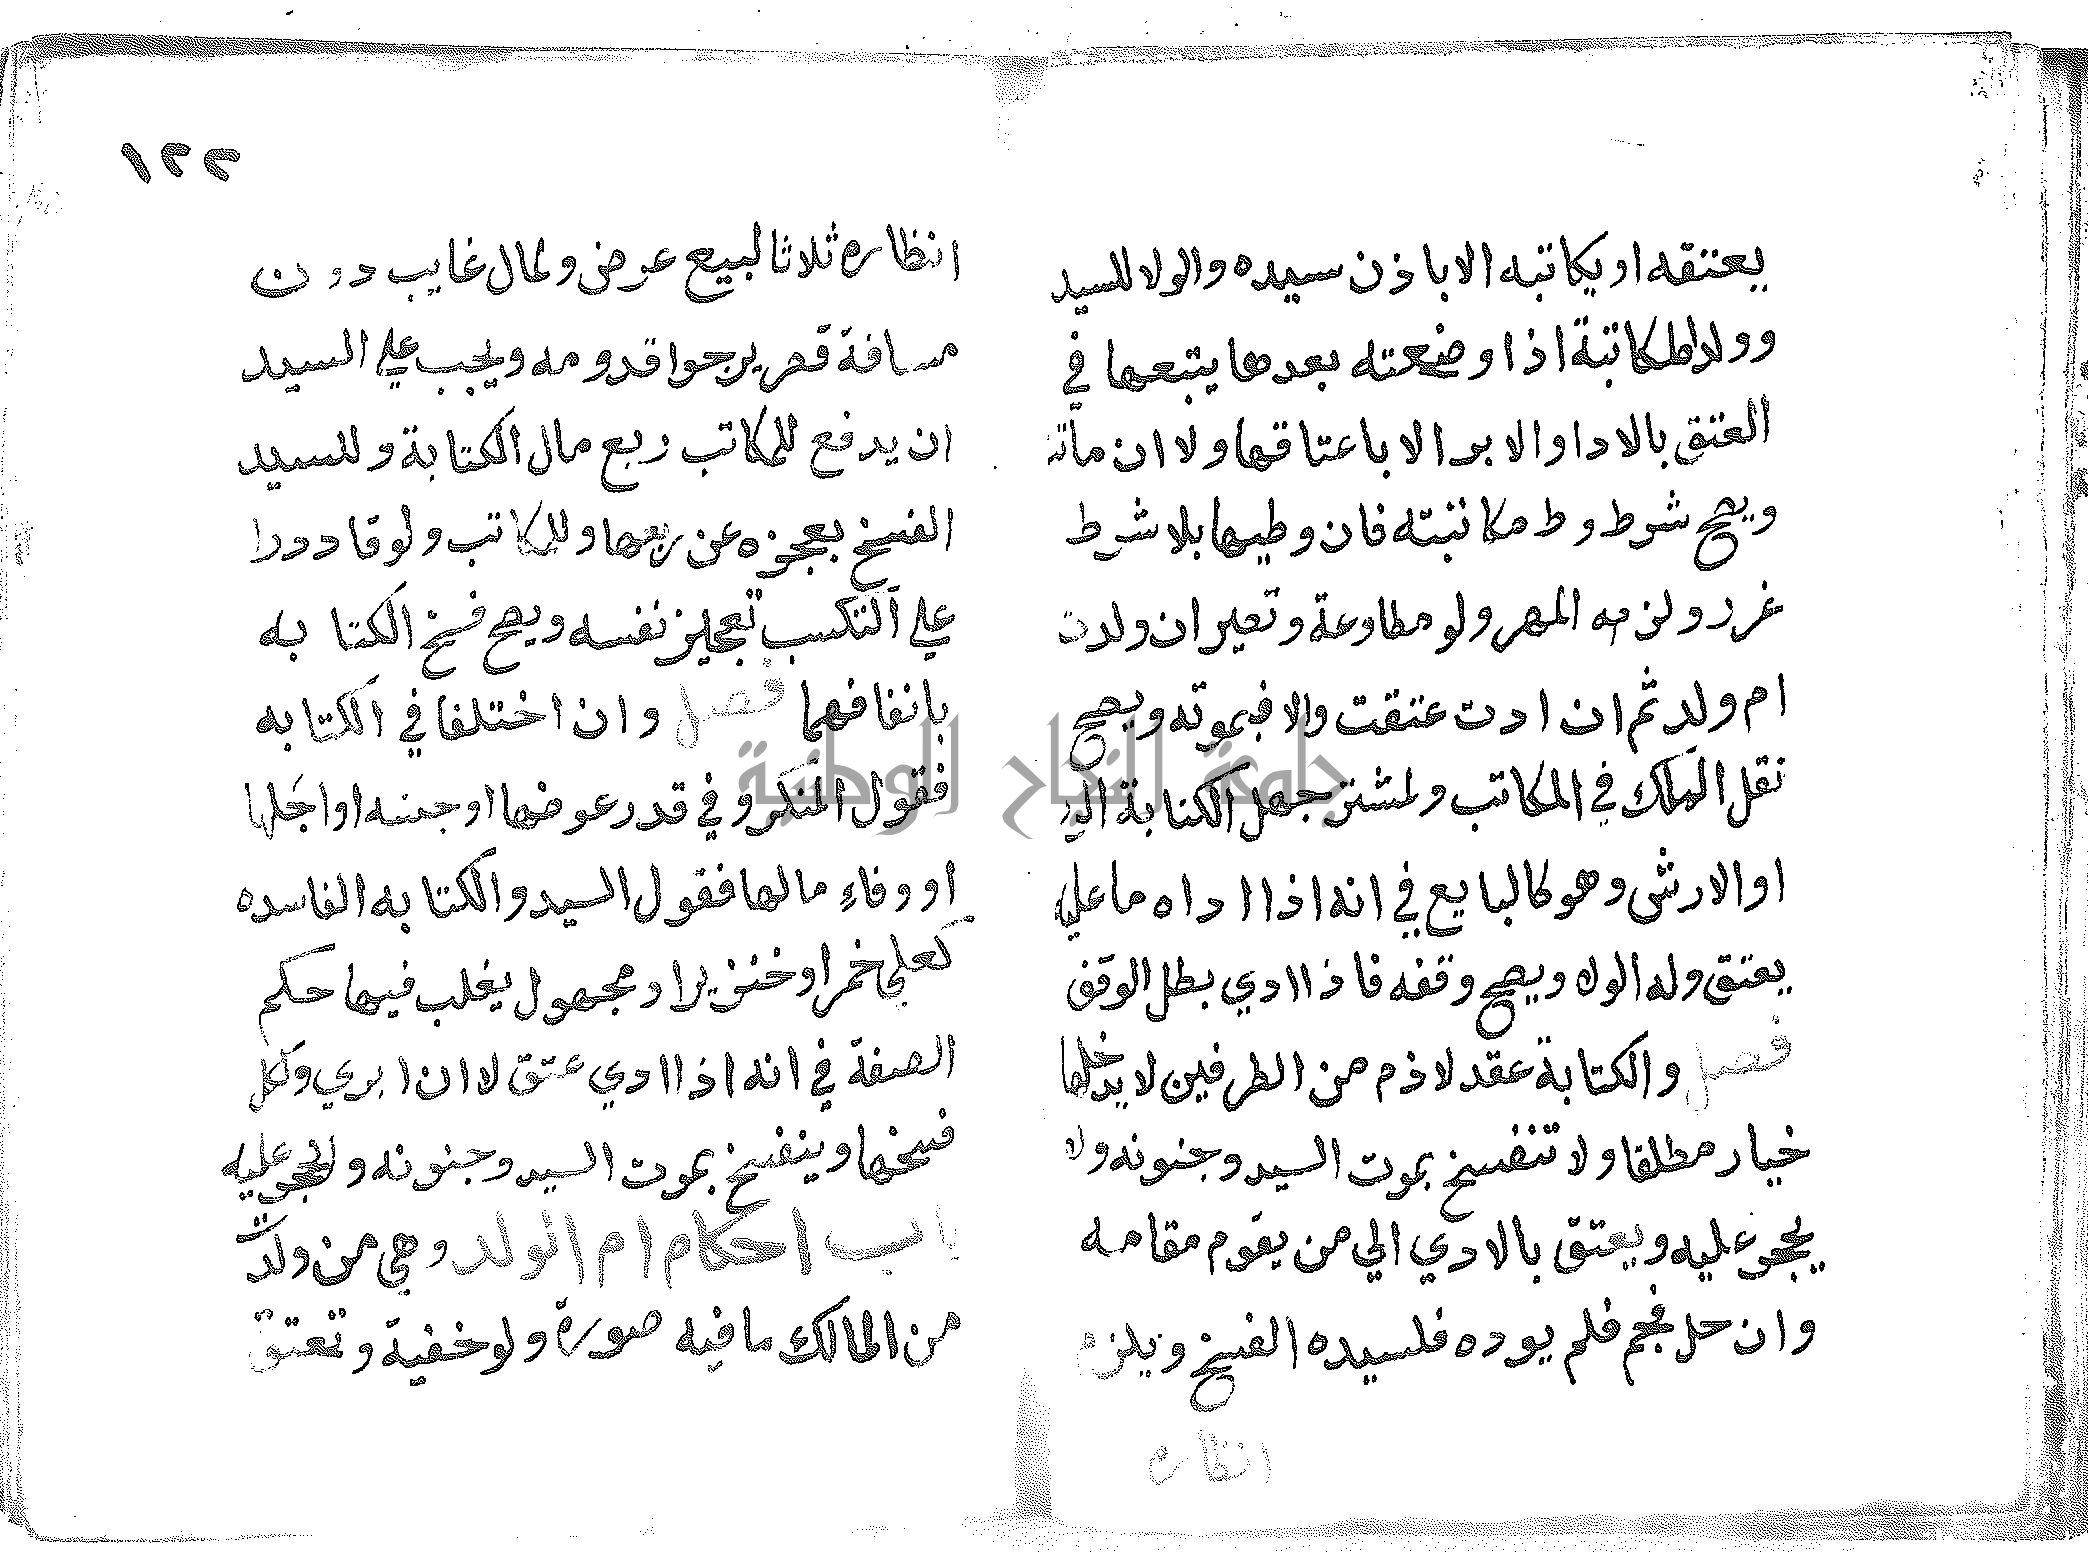 يعتقه او يكاتبه الا باذن سيده والولا للسيد
وولد المكاتبة اذا وضعته بعدها يتبعها في
العتق بالادا والابرالا باعتاقها ولا ان ماتت
ويصح شرط وط مكاتبته فان وطيها بلا شرط
عزر ولزمه المهر ولو مطاوعة وتصير ان ولدت
ام ولد ثم ان ادت عتقت والا فبموته ويصح
نقل الملك في المكاتب ولمشتر جهل الكتابة الرد
او الارش وهو كالبايع في انه اذا اداه ما عليه
يعتق وله الولا ويصح وقفه فاذا ادي بطل الوقف
فصل والكتابة عقد لازم من الطرفين لا يدخلها
خيار مطلقا ولا تنفسخ بموت السيد وجنونه ولا
يحجر عليه ويعتق بالادي الي من يقوم مقامه
وان حل نجم فلم يوده فلسيده الفسخ ويلزمه
انظاره
١٢٢
انظاره ثلاثا لبيع عرض ولمال غايب دون
مسافة قصر يرجوا قدومه ويجب علي السيد
ان يدفع للمكاتب ربع مال الكتابة وللسيد
الفسخ بعجزه عن ربعها وللمكاتب ولو قادرا
علي التكسب تعجيز نفسه ويصح فسخ الكتابه
باتفاقهما فصل وان اختلفا في الكتابه
فقول المنكر وفي قدر عوضها او جنسه او اجلها
او وفاء مالها فقول السيد والكتابه الفاسده
كعلي خمر او خنزير او مجهول يغلب فيها حكم
الصفة في انه اذا ادي عتق لا ان ابري ولكل
فسخها وينفسخ بموت السيد وجنونه والحجر عليه
باب احكام ام الولد وهي من ولدت
من المالك ما فيه صورة ولو خفية وتعتق
جامعة النجاح الوطنية